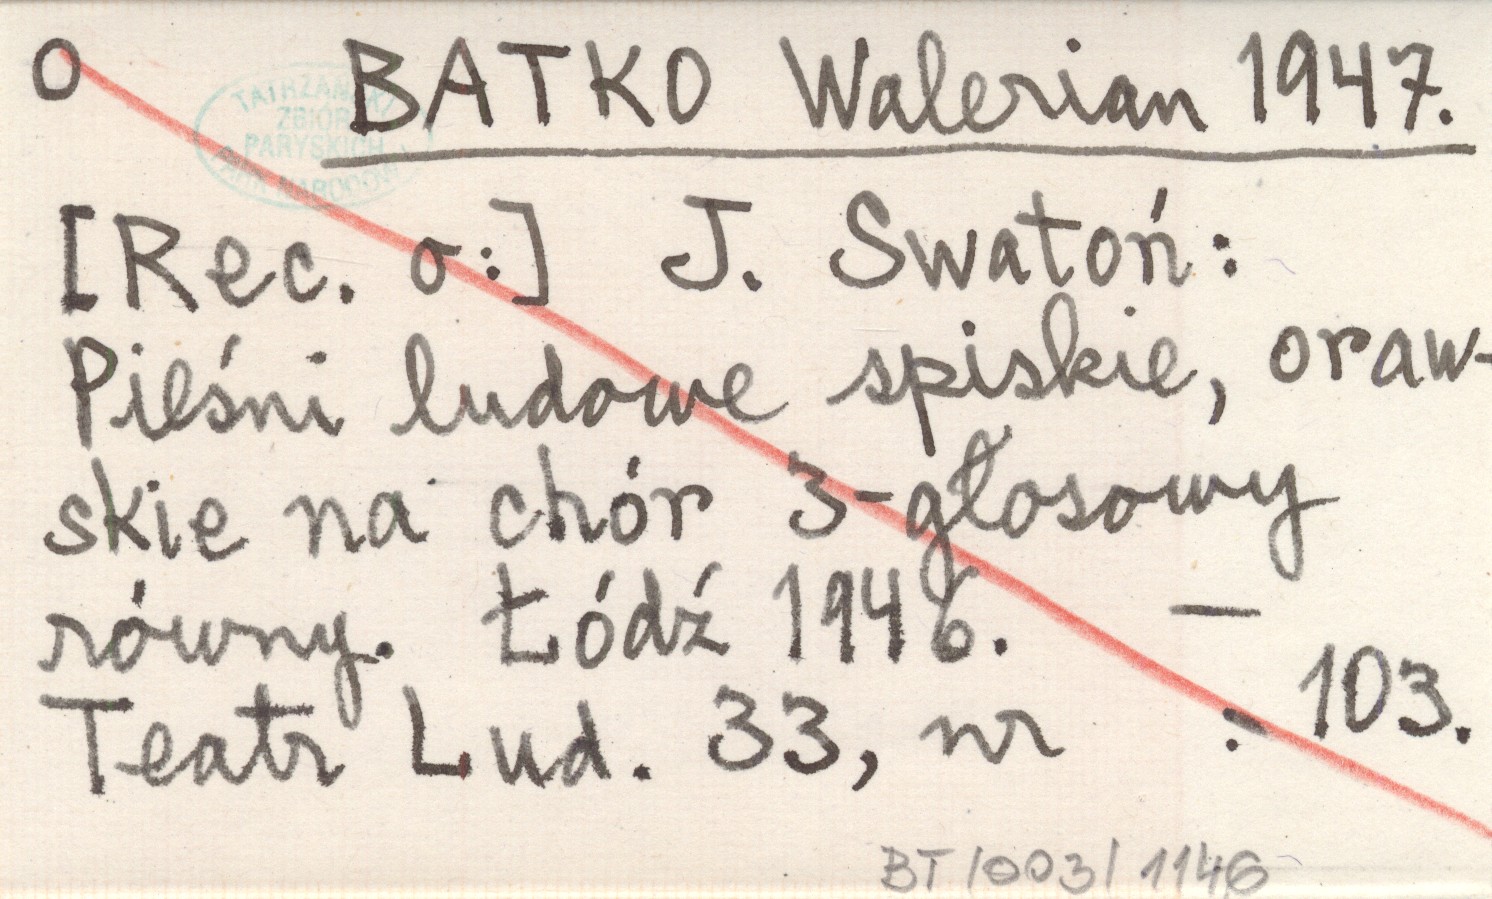 o BATKO Walerian 1947.
TATRZAŃSKI
ZBIÓR
PARYSKICH
PARK NARODOWY
[Rec. o:] J. Swatoń:
Pieśni ludowe spiskie, oraw-
skie na chór 3-głosowy
równy. Łódź 1946. —
Teatr Lud. 33, nr : 103.
BT/003/1146